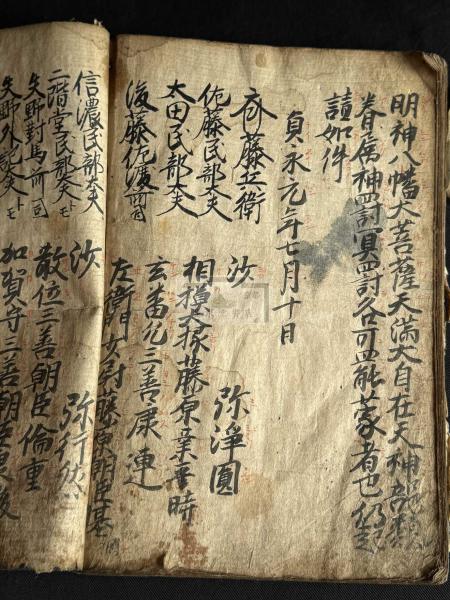 明神八幡大菩薩天満大自在天神部類
眷属神罸冥罸各可罷蒙者也仍起
請如件
貞永元年七月十日
斎藤兵衛 沙弥浄圓
佐藤民部大夫 相模大掾藤原業時
太田民部大夫 玄番允三善康連
後藤佐渡前司 左衛門少尉藤原朝臣基
信濃民部大夫 沙弥行
二階堂民部大夫トモ 散位三善朝臣倫重
矢野對馬前司 加賀守三善朝臣康俊
矢野外記大夫トモ